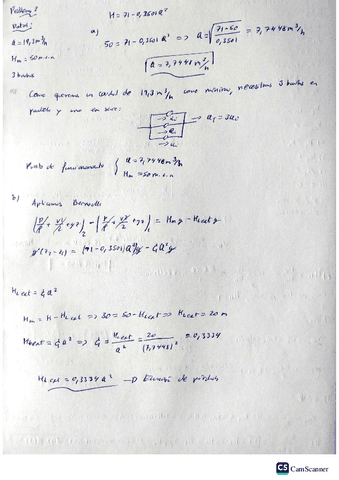 Problema 2
Datos:
Q = 19,3 m³/h
Hm = 50 m.c.a
3 bombas
H = 71 - 0,3501Q²
a)
50 = 71 - 0,3501Q² => Q = √(71-50 / 0,3501) = 7,7448 m³/h
Q = 7,7448 m³/h
Como queremos un caudal de 19,3 m³/h como mínimo, necesitamos 3 bombas en
paralelo y una en serie:
Qi
Qi
Qi
→ QT = 3Qi
Punto de funcionamiento { Q = 7,7448 m³/h
Hm = 50 m.c.a
b) Aplicamos Bernoulli
(P/ρ + v²/2 + gz)₂ - (P/ρ + v²/2 + gz)₁ = Hm g - HL
g(z₂ - z₁) = (71 - 0,3501)Q² g - C₁Q² g
= C₁Q²
Hm = H - => 30 = 50 - => = 20 m
= C₁Q² => C₁ = / Q² = 20 / (7,7448)² = 0,3334
= 0,3334 Q² → Ecuación de pérdidas
CS CamScanner